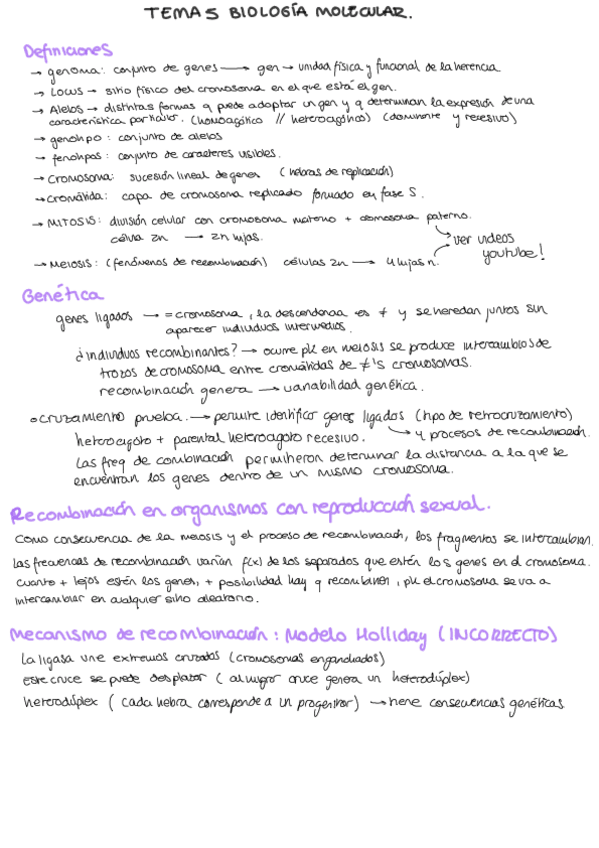 TEMA 5 BIOLOGÍA MOLECULAR.
Definiciones
→ genoma: conjunto de genes → gen → unidad física y funcional de la herencia
→ Locus → sitio físico del cromosoma en el que está el gen.
→ Alelos → distintas formas q puede adoptar un gen y q determinan la expresión de una
característica particular. (homocigótico // heterocigótico) (dominante y recesivo)
→ genotipo: conjunto de alelos
→ fenotipos: conjunto de caracteres visibles.
→ cromosoma: sucesión lineal de genes (hebras de replicación)
→ cromátida: capa de cromosoma replicado formado en fase S.
→ MITOSIS: división celular con cromosoma materno + cromosoma paterno.
célula 2n → 2n hijas.
→ ver videos
youtube!
→ MEIOSIS: (fenómenos de recombinación) células 2n → 4 hijas n.
Genética
genes ligados → = cromosoma, la descendencia es ≠ y se heredan juntos sin
aparecer individuos intermedios.
¿individuos recombinantes? → ocurre pk en meiosis se produce intercambios de
trozos de cromosoma entre cromátidas de ≠'s cromosomas.
recombinación genera → variabilidad genética.
cruzamiento prueba. → permite identificar genes ligados (tipo de retrocruzamiento)
heterocigoto + parental heterocigoto recesivo. → y procesos de recombinación.
Las freq de combinación permitieron determinar la distancia a la que se
encuentran los genes dentro de un mismo cromosoma.
Recombinación en organismos con reproducción sexual.
Como consecuencia de la meiosis y el proceso de recombinación, los fragmentos se intercambian.
Las frecuencias de recombinación varían f(x) de los separados que estén los genes en el cromosoma.
cuanto + lejos estén los genes, + posibilidad hay q recombinen, pk el cromosoma se va a
intercambiar en cualquier sitio aleatorio.
Mecanismo de recombinación: Modelo Holliday (INCORRECTO)
La ligasa une extremos cruzados (cromosomas enganchados)
este cruce se puede desplazar (al migrar cruce genera un heterodúplex)
heterodúplex (cada hebra corresponde a un progenitor) → tiene consecuencias genéticas